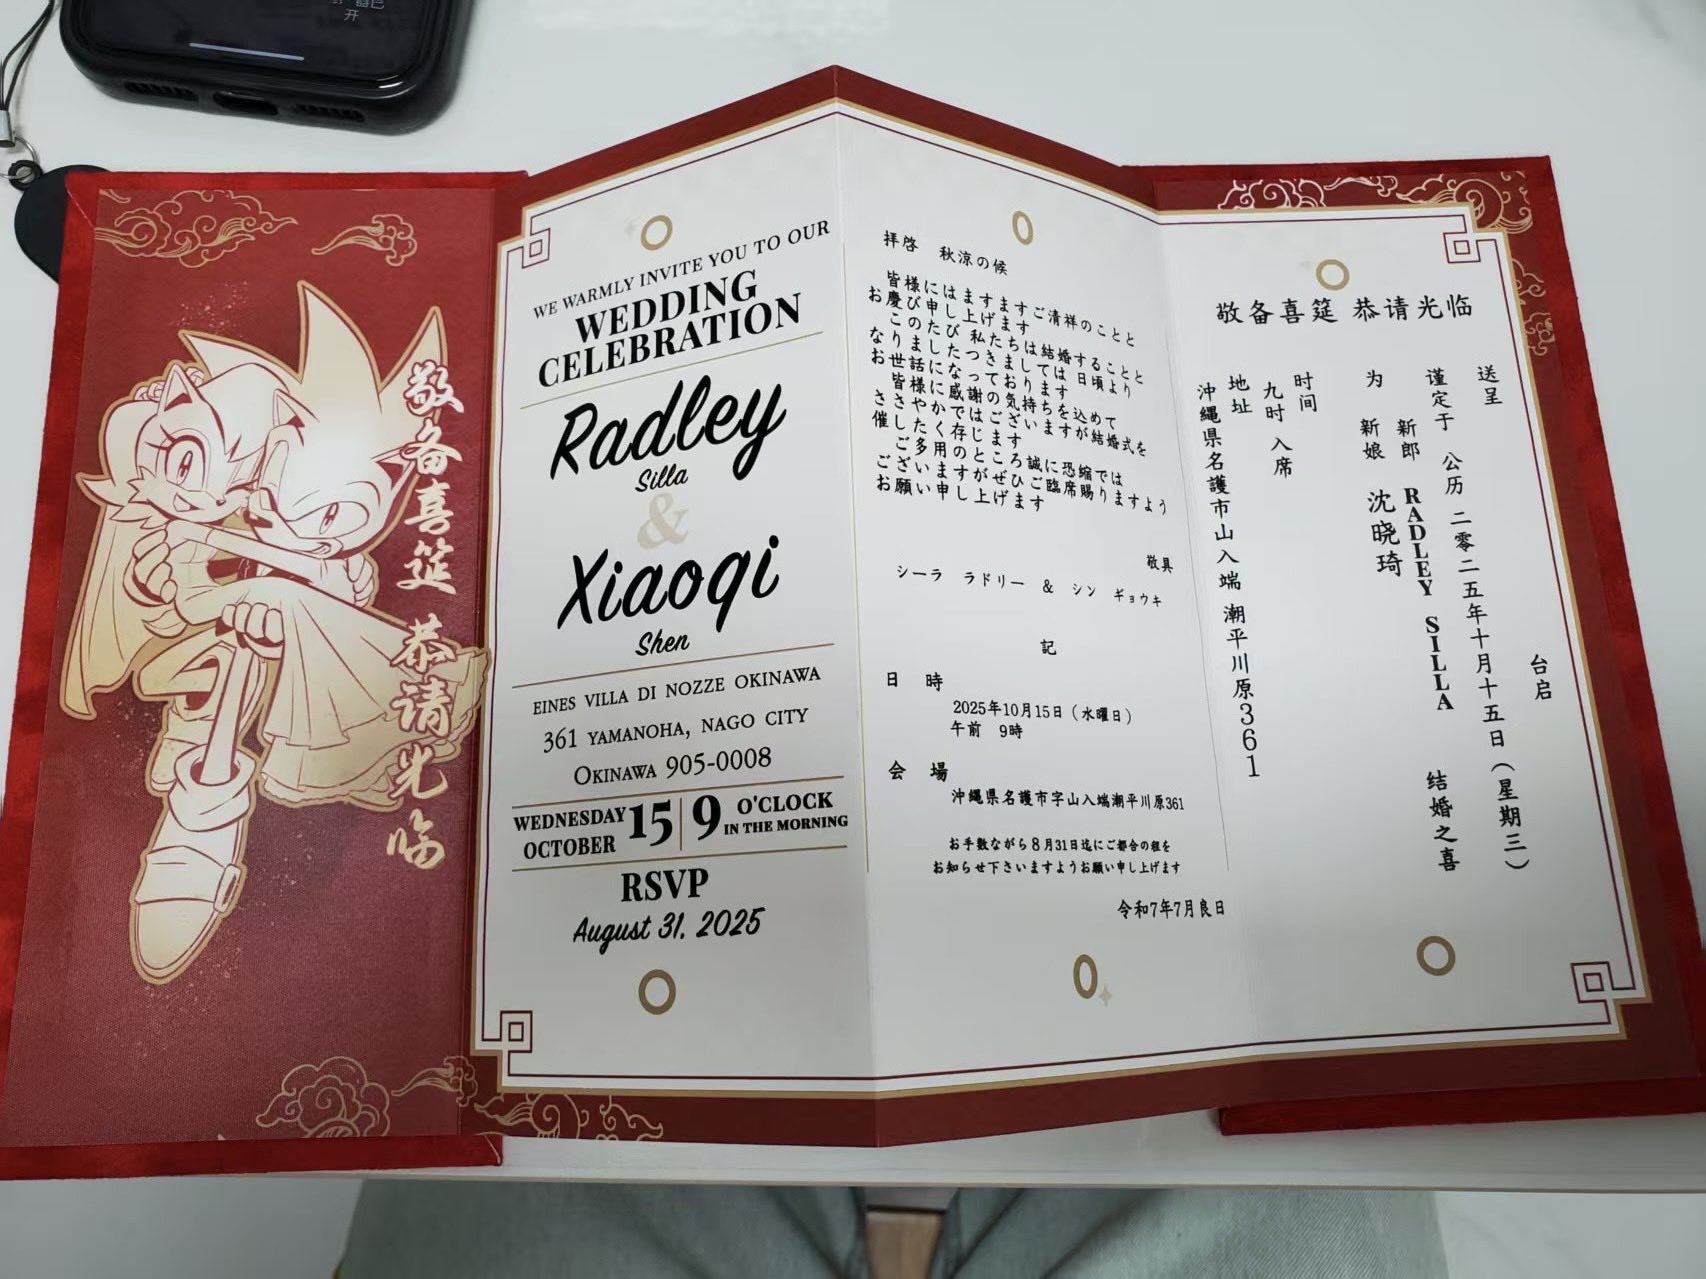 开
敬备喜筵 恭请光临
WE WARMLY INVITE YOU TO OUR
WEDDING
CELEBRATION
Radley
Silla
&
Xiaoqi
Shen
EINES VILLA DI NOZZE OKINAWA
361 YAMANOHA, NAGO CITY
OKINAWA 905-0008
WEDNESDAY
OCTOBER
15
9
O'CLOCK
IN THE MORNING
RSVP
August 31, 2025
拝啓 秋涼の候
皆様にはますますご清祥のことと
お慶び申し上げます
このたび 私たちは結婚することと
なりましたつきましては 日頃より
お世話になっております
皆様に感謝の気持ちを込めて
ささやかではございますが結婚式を
催したく存じます
ご多用のところ誠に恐縮では
ございますがぜひご臨席賜りますよう
お願い申し上げます
敬具
シーラ ラドリー & シン ギョウキ
記
日 時
2025年10月15日（水曜日）
午前 9時
会 場
沖縄県名護市字山入端潮平川原361
お手数ながら8月31日迄にご都合の程を
お知らせ下さいますようお願い申し上げます
令和7年7月良日
敬备喜筵 恭请光临
送呈 台启
谨定于 公历 二零二五年十月十五日（星期三）
为 新郎 RADLEY SILLA
新娘 沈晓琦
结婚之喜
时间
九时 入席
地址
沖縄県名護市山入端 潮平川原361